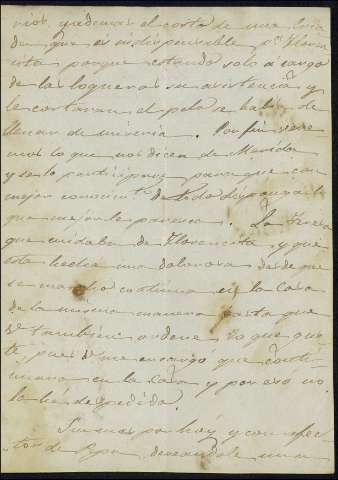 rios, y ademas el corte de una
da que es indispensable pª Floren
cita porque estando solo a cargo
de las loqueras su asistencia y
le cortaran el pelo se habia de
llenar de miseria. Por fin vere
mos lo que nos dicen de
y se lo participare para que con
mejor conocimtº de todo disponga lo
que mejor le parezca. La
que cuidaba de Florencita, y que
esta hecha una desde que
se marcho continua en la casa
de la misma manera hasta que
Vd tambien ordene lo que
pues Vd me encargó que conti
nuara en la casa y por eso no
la he despedido.
Sin mas por hoy y con afec
tos de Pepa, deseandole una